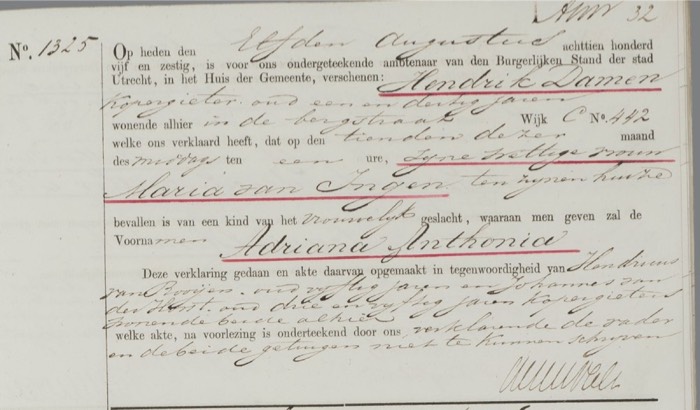 32
No. 1325
Op heden den Elfden Augustus achttien honderd
vijf en zestig, is voor ons ondergeteekende ambtenaar van den Burgerlijken Stand der stad
Utrecht, in het Huis der Gemeente, verschenen: Hendrik Damen
Kopergieter oud een en dertig jaren
wonende alhier in de bergstraat Wijk C No. 442
welke ons verklaard heeft, dat op den tienden dezer maand
des middags ten een ure, zyne wettige vrouw
Maria van Ingen ten zynen huize
bevallen is van een kind van het vrouwelyk geslacht, waaraan men geven zal de
Voornamen Adriana Anthonia
Deze verklaring gedaan en akte daarvan opgemaakt in tegenwoordigheid van Hendricus
van Rooijen oud vyftig jaren en Johannes van
der Horst oud drie en vyftig jaren kopergieters
wonende beide alhier
welke akte, na voorlezing is onderteekend door ons verklarende de vader
en de beide getuigen niet te kunnen schryven